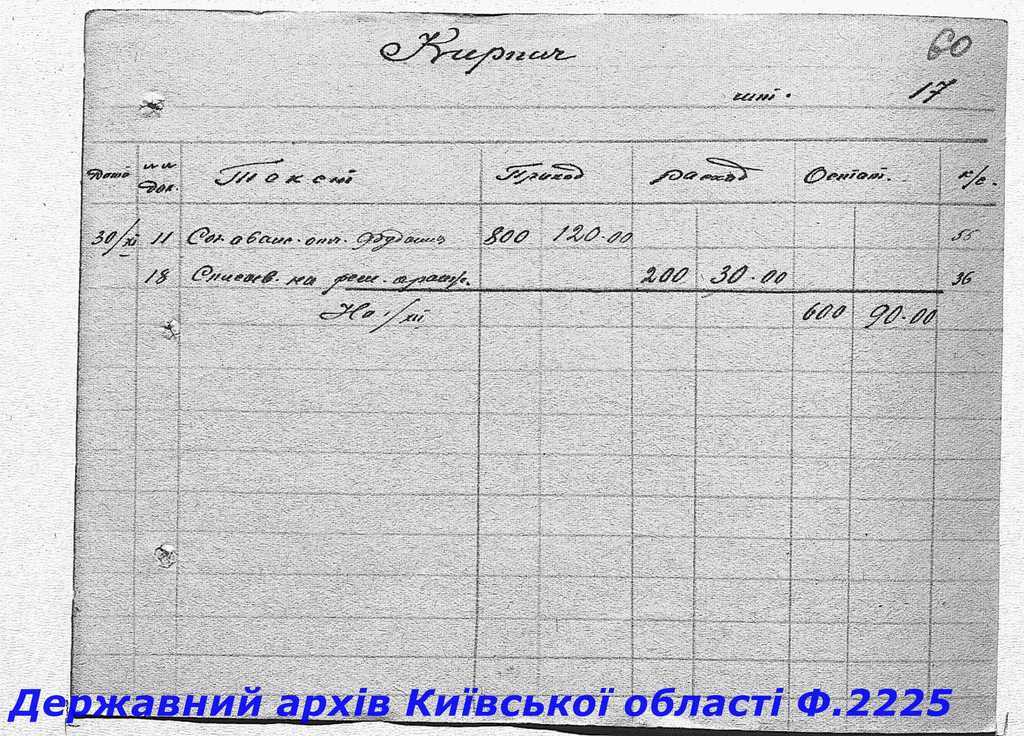 60
Кирпич
шт. 17
Дата №№ док. Текст Приход Расход Остат. к/с.
30/XI 11 Сог. аванс. отч. 800 120-00 55
18 Списав. на рем. 200 30-00 36
На 1/XII 600 90-00
Державний архів Київської області Ф.2225